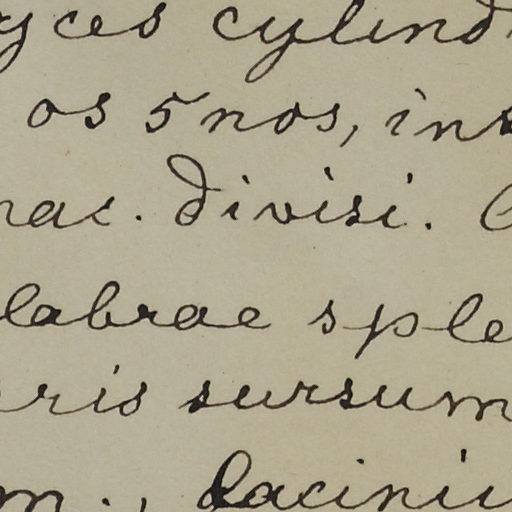 yces cylind
os 5nos, int
nac. divisi.
labrae sple
ris sursum
m., lacinii